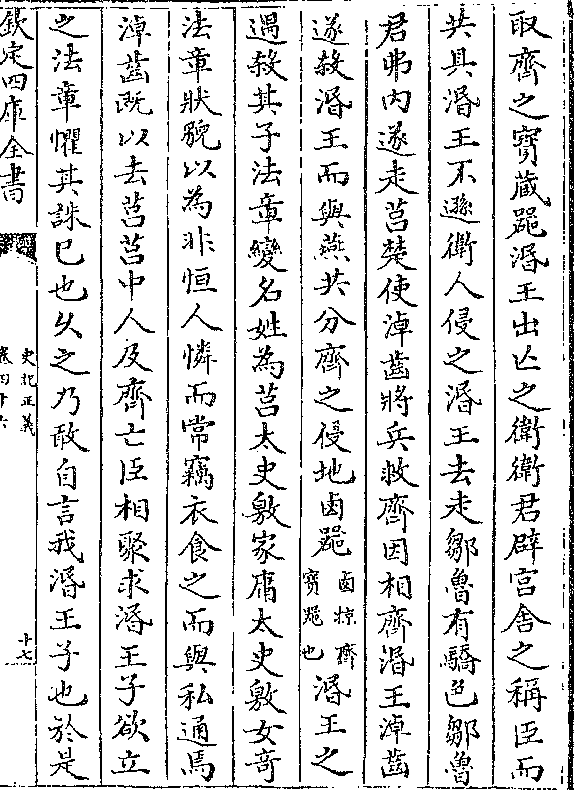 取齊之寳藏噐湣王出亡之衛衛君辟宫舍之稱臣而
共具湣王不遜衛人侵之湣王去走鄒魯有驕色鄒魯
君弗内遂走莒楚使淖齒將兵救齊因相齊湣王淖齒
遂殺湣王而與燕共分齊之侵地鹵噐鹵掠齊寳噐也湣王之
遇殺其子法章變名姓為莒太史敫家庸太史敫女竒
法章狀貌以為非恒人憐而常竊衣食之而與私通焉
淖齒既以去莒莒中人及齊亡臣相聚求湣王子欲立
之法章懼其誅已也乆之乃敢自言我湣王子也於是
欽定四庫全書
史記正義
卷四十六
十七